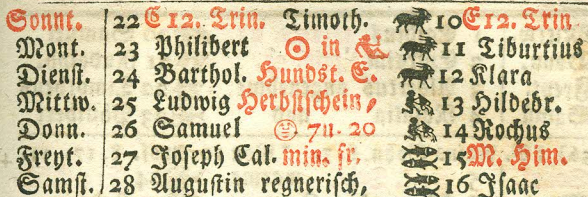 Sonnt. 22 E 12. Trin. Timoth. 10 E 12. Trin
Mont. 23 Philibert ☉ in ♐ 11 Tiburtius
Dienst. 24 Barthol. Hundst. E. 12 Klara
Mittw. 25 Ludwig Herbstschein, 13 Hildebr.
Donn. 26 Samuel 7u. 20 14 Rochus
Freyt. 27 Joseph Cal. min. fr. 15 M. Him.
Samst. 28 Augustin regnerisch, 16 Isaac